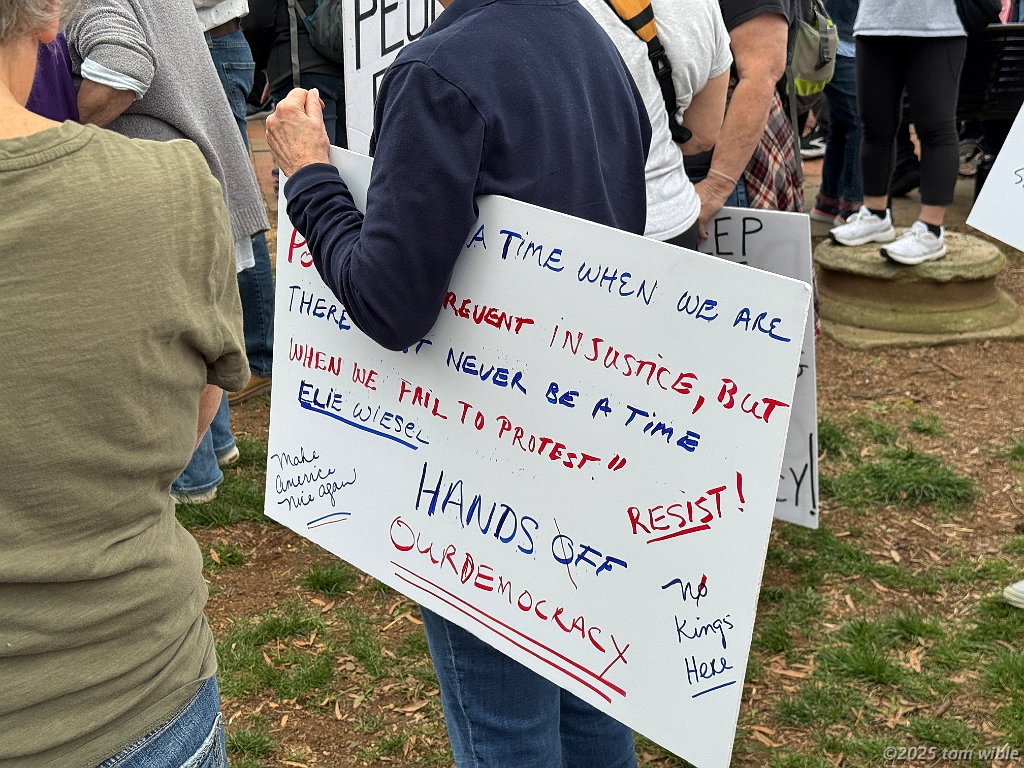 PEO
A TIME WHEN WE ARE
REVENT INJUSTICE, BUT
THERE NEVER BE A TIME
WHEN WE FAIL TO PROTEST"
ELIE WIESEL
Make
America
Nice again
HANDS OFF
OUR DEMOCRACY
RESIST!
No
King's
Here
EP
Y!
©2025 tom wible